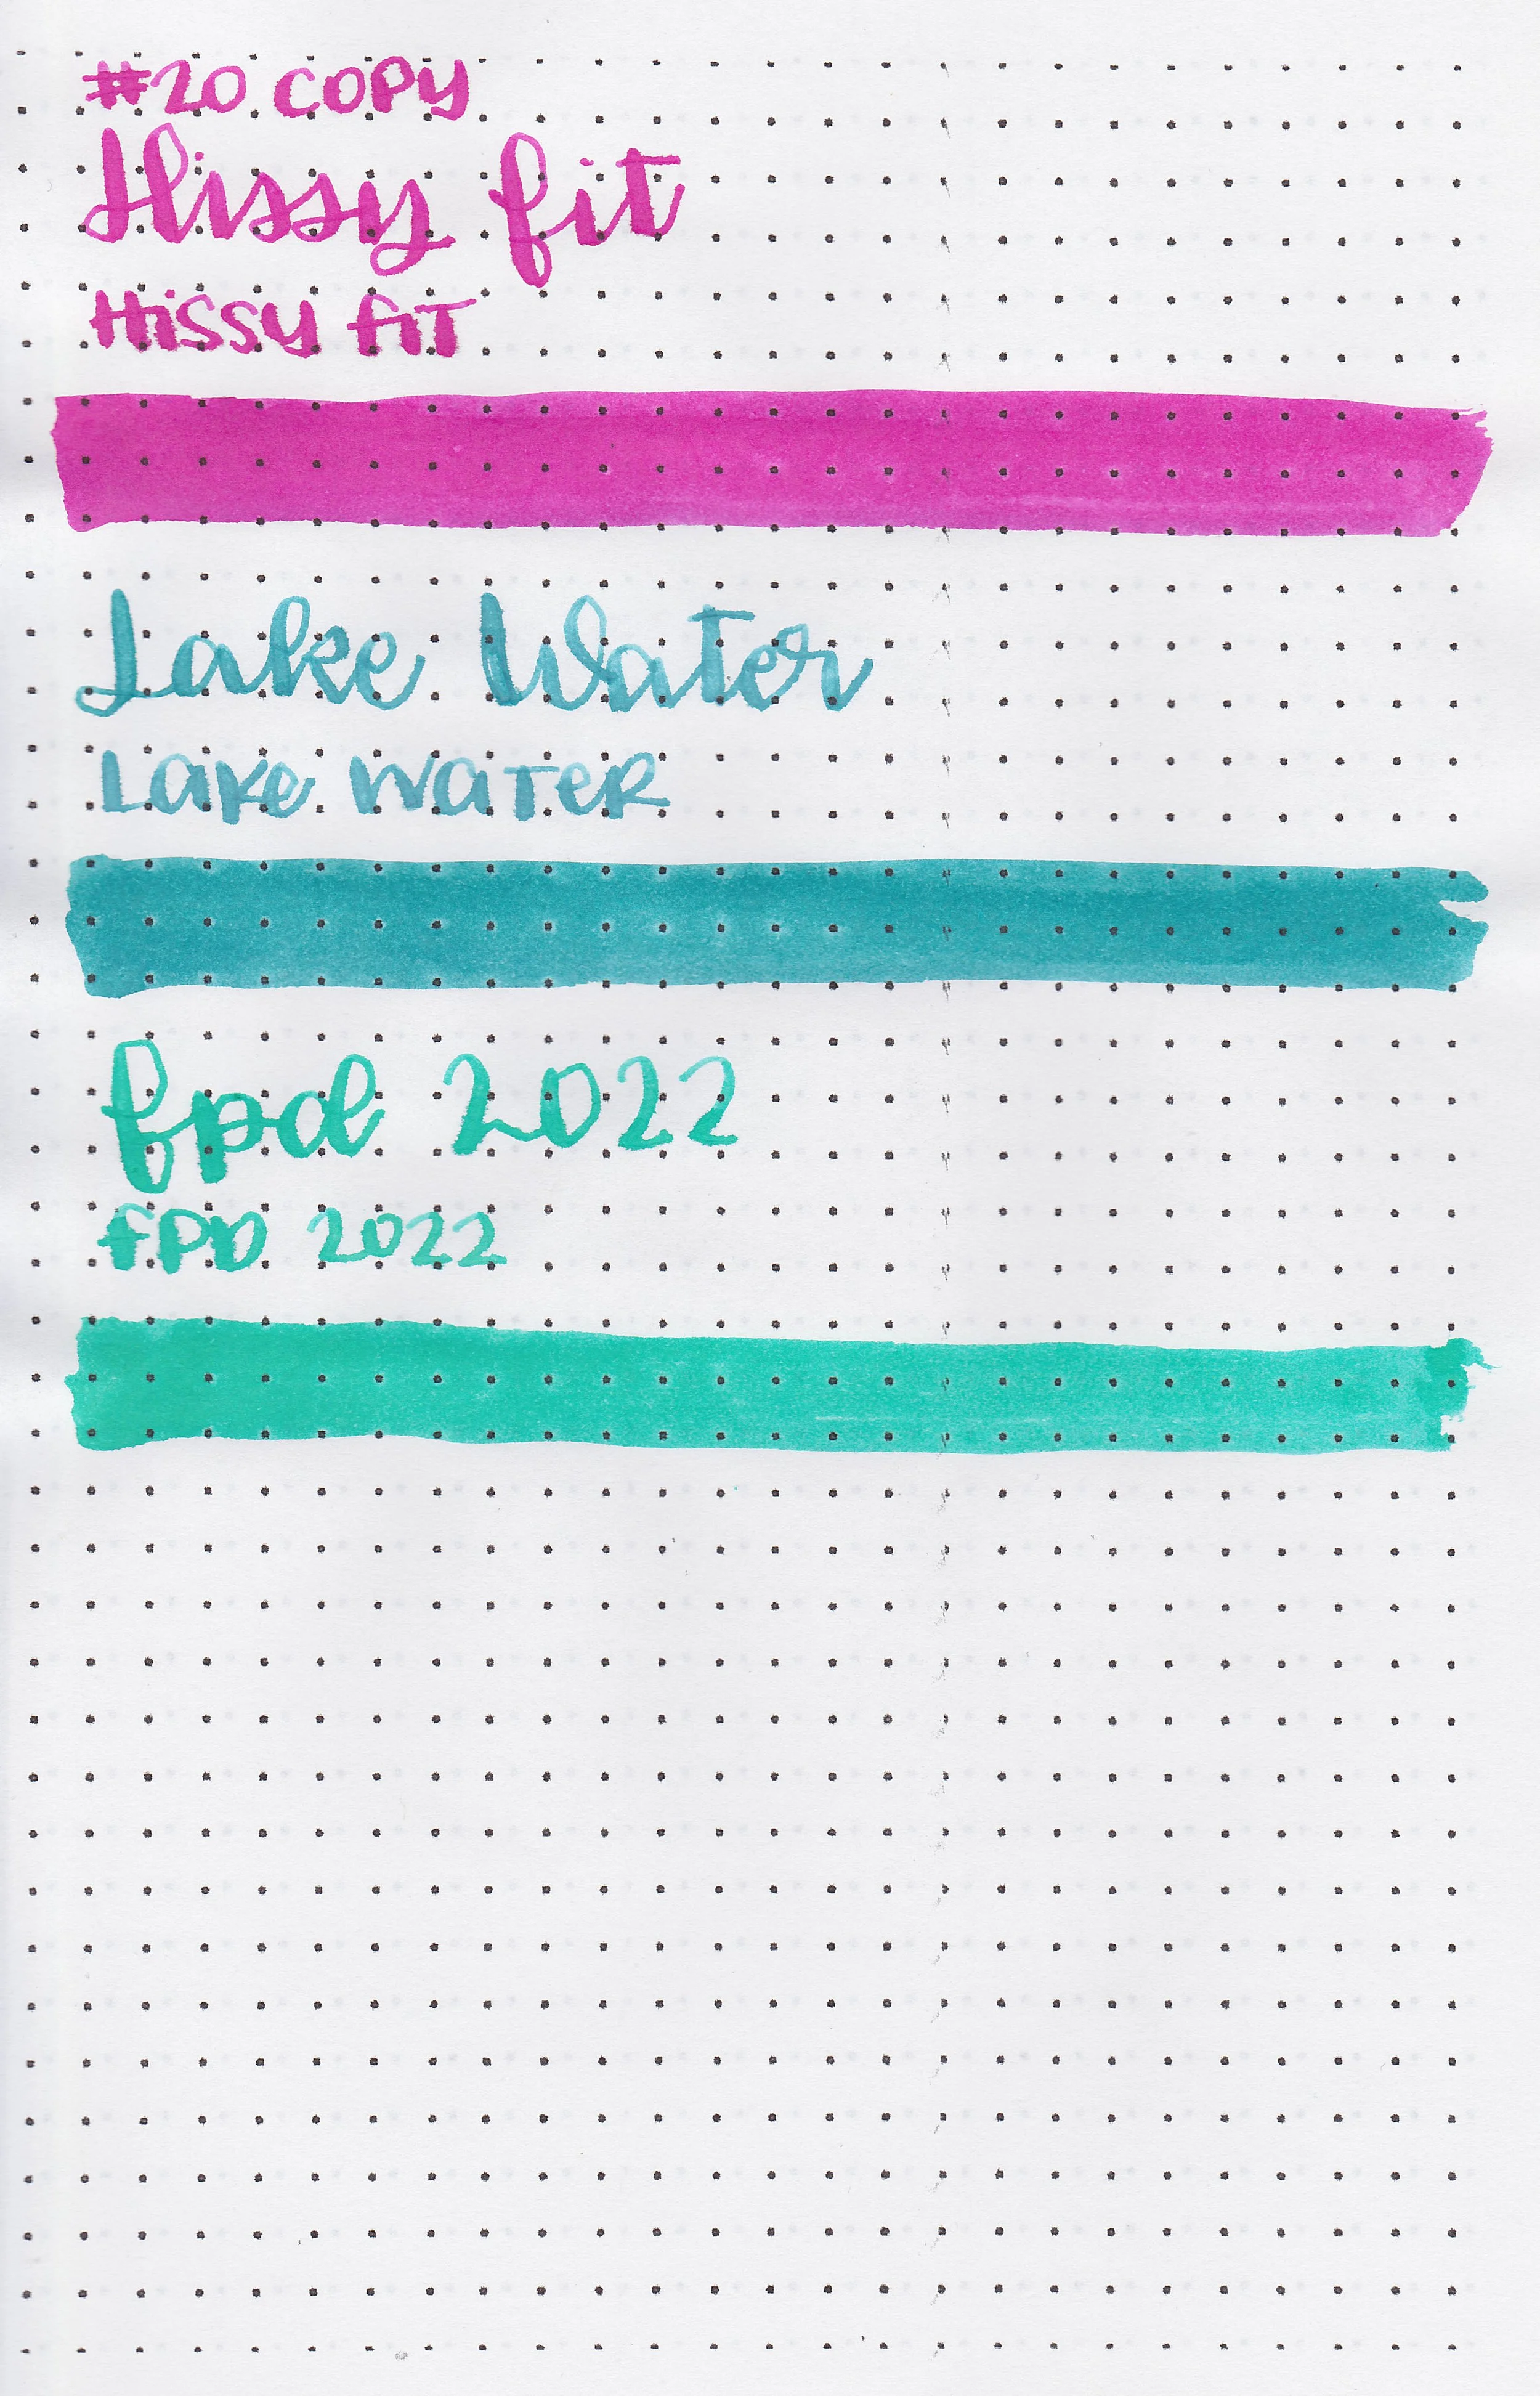 #20 COPY
Hissy fit
HiSSY fiT
Lake Water
Lake WaTeR
fpd 2022
FPD 2022